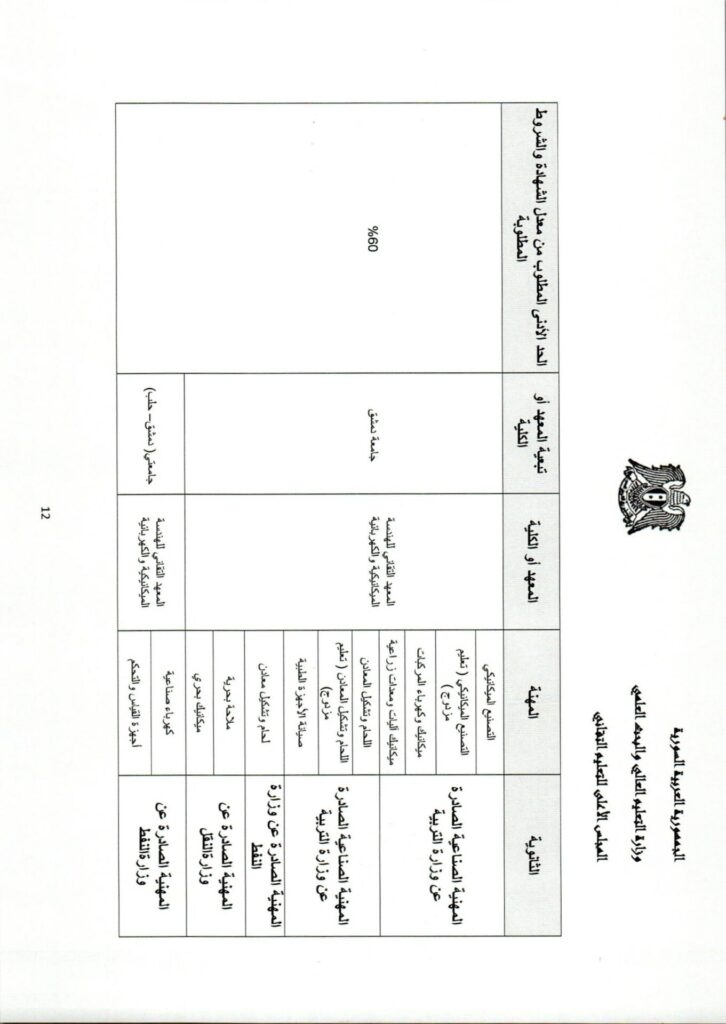 الجمهورية العربية السورية
وزارة التعليم العالي والبحث العلمي
المجلس الأعلى للتعليم التقاني
الثانوية
المهنة
المعهد أو الكلية
تبعية المعهد أو
الكلية
الحد الأدنى المطلوب من معدل الشهادة والشروط
المطلوبة
المهنية الصناعية الصادرة
عن وزارة التربية
التصنيع الميكانيكي
التصنيع الميكانيكي ( تعليم
مزدوج )
ميكانيك وكهرباء المركبات
ميكانيك آليات ومعدات زراعية
المعهد التقاني للهندسة
الميكانيكية والكهربائية
جامعة دمشق
%60
المهنية الصناعية الصادرة
عن وزارة التربية
اللحام وتشكيل المعادن
اللحام وتشكيل المعادن ( تعليم
مزدوج)
صيانة الأجهزة الطبية
المهنية الصادرة عن وزارة
النفط
لحام وتشكيل معادن
المهنية الصادرة عن
وزارة النقل
ملاحة بحرية
ميكانيك بحري
المهنية الصادرة عن
وزارة النفط
كهرباء صناعية
أجهزة القياس والتحكم
المعهد التقاني للهندسة
الميكانيكية والكهربائية
جامعتي( دمشق– حلب)
12